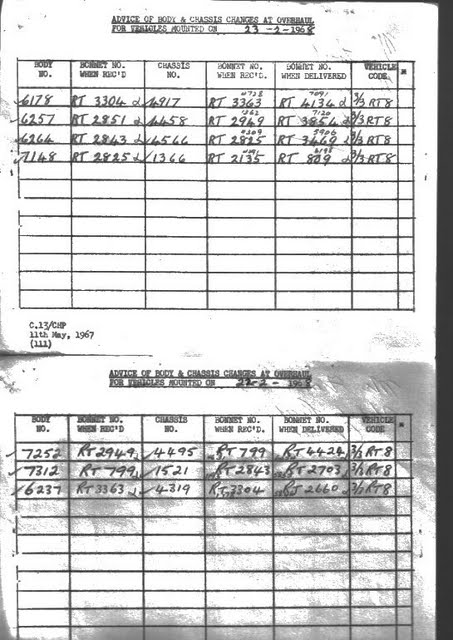 ADVICE OF BODY & CHASSIS CHANGES AT OVERHAUL
FOR VEHICLES MOUNTED ON 23 -2- 1968
BODY NO. BONNET NO. WHEN REC'D CHASSIS NO. BONNET NO. WHEN REC'D. BONNET NO. WHEN DELIVERED VEHICLE CODE *
6178 RT 3304 4917 RT 3363 RT 4134 3/3 RT8
6257 RT 2851 4458 RT 2949 RT 3854 3/3 RT8
6264 RT 2843 4566 RT 2825 RT 3469 3/3 RT8
7148 RT 2825 1366 RT 2135 RT 809 3/3 RT8
C.13/CHP
11th May, 1967
(111)
ADVICE OF BODY & CHASSIS CHANGES AT OVERHAUL
FOR VEHICLES MOUNTED ON 22-2- 1968
BODY NO. BONNET NO. WHEN REC'D CHASSIS NO. BONNET NO. WHEN REC'D. BONNET NO. WHEN DELIVERED VEHICLE CODE *
7252 RT 2949 4495 RT 799 RT 4424 3/3 RT8
7312 RT 799 1521 RT 2843 RT 2703 3/3 RT8
6237 RT 3363 4319 RT 3304 RT 2660 3/3 RT8